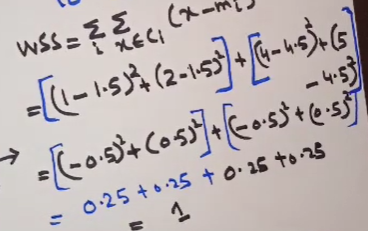 WSS = Σ Σ (x - mᵢ)²
i x∈Cᵢ
= [(1 - 1.5)² + (2 - 1.5)²] + [(4 - 4.5)² + (5
- 4.5)²]
→ = [(-0.5)² + (0.5)²] + [(-0.5)² + (0.5)²]
= 0.25 + 0.25 + 0.25 + 0.25
= 1